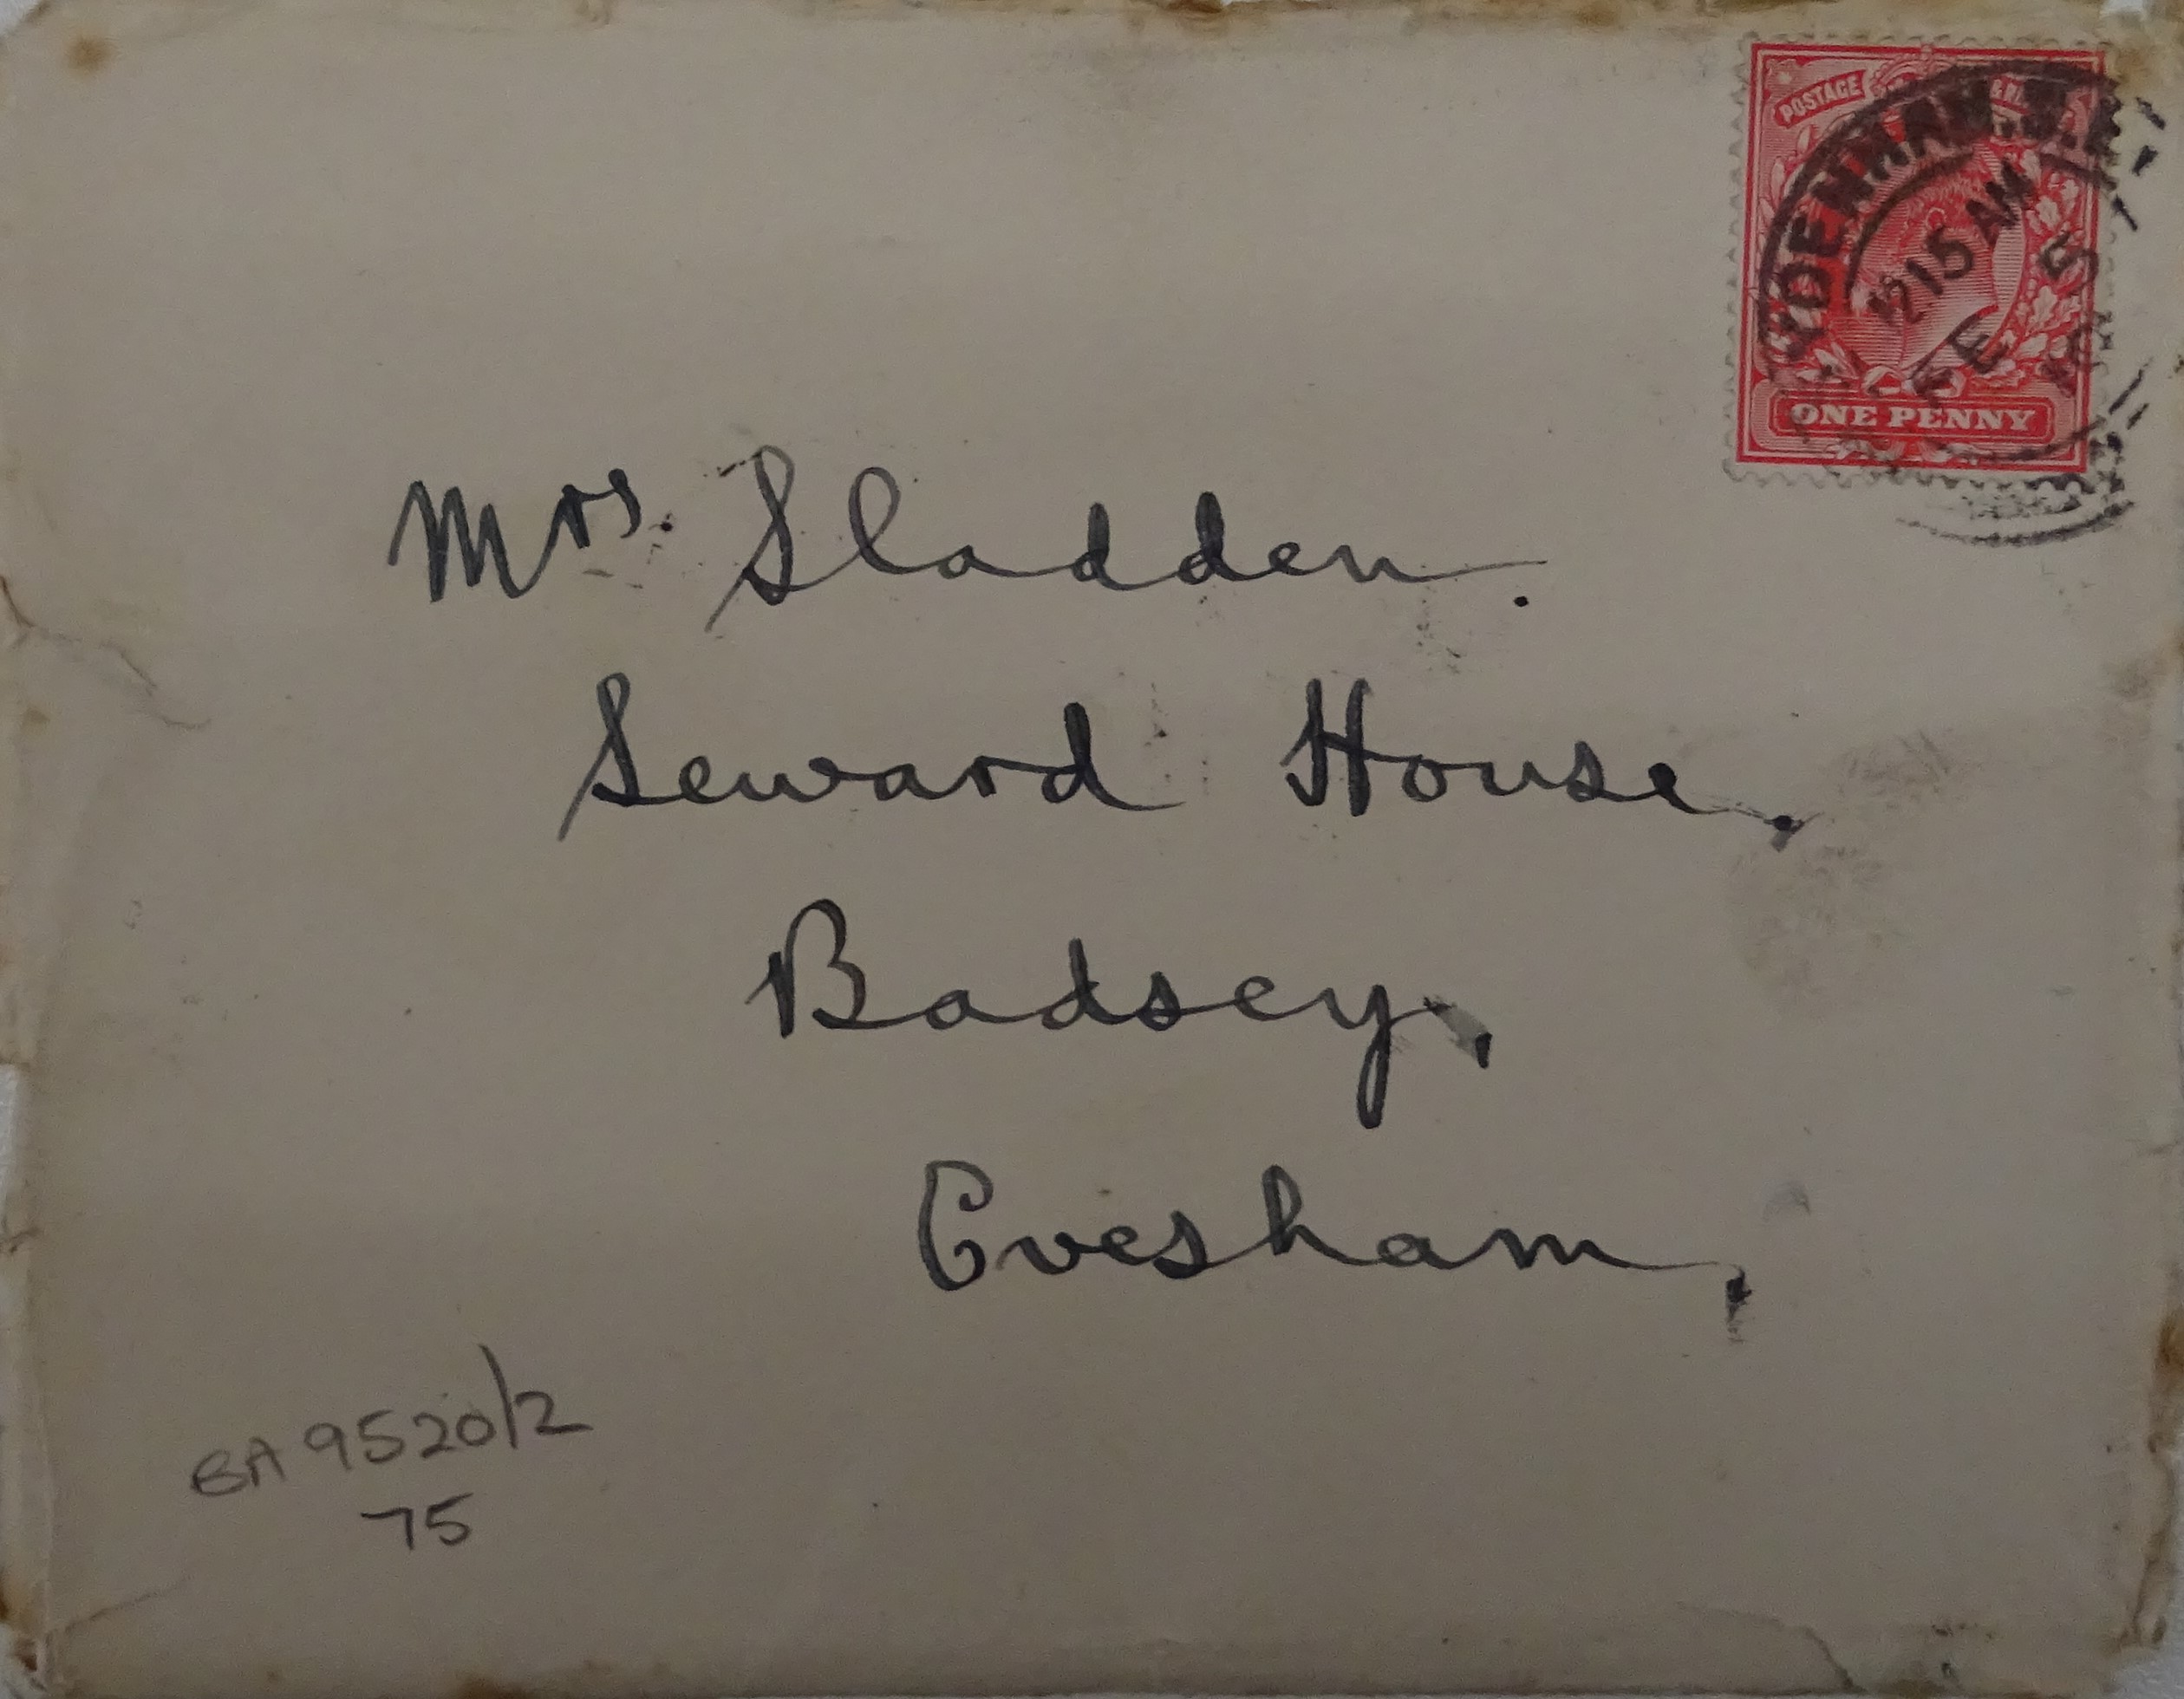 POSTAGE
YDENHAM.S.E.
12 15 AM
FE 5
ONE PENNY
Mrs. Sladden.
Seward House,
Badsey,
Evesham,
BA 9520/2
75